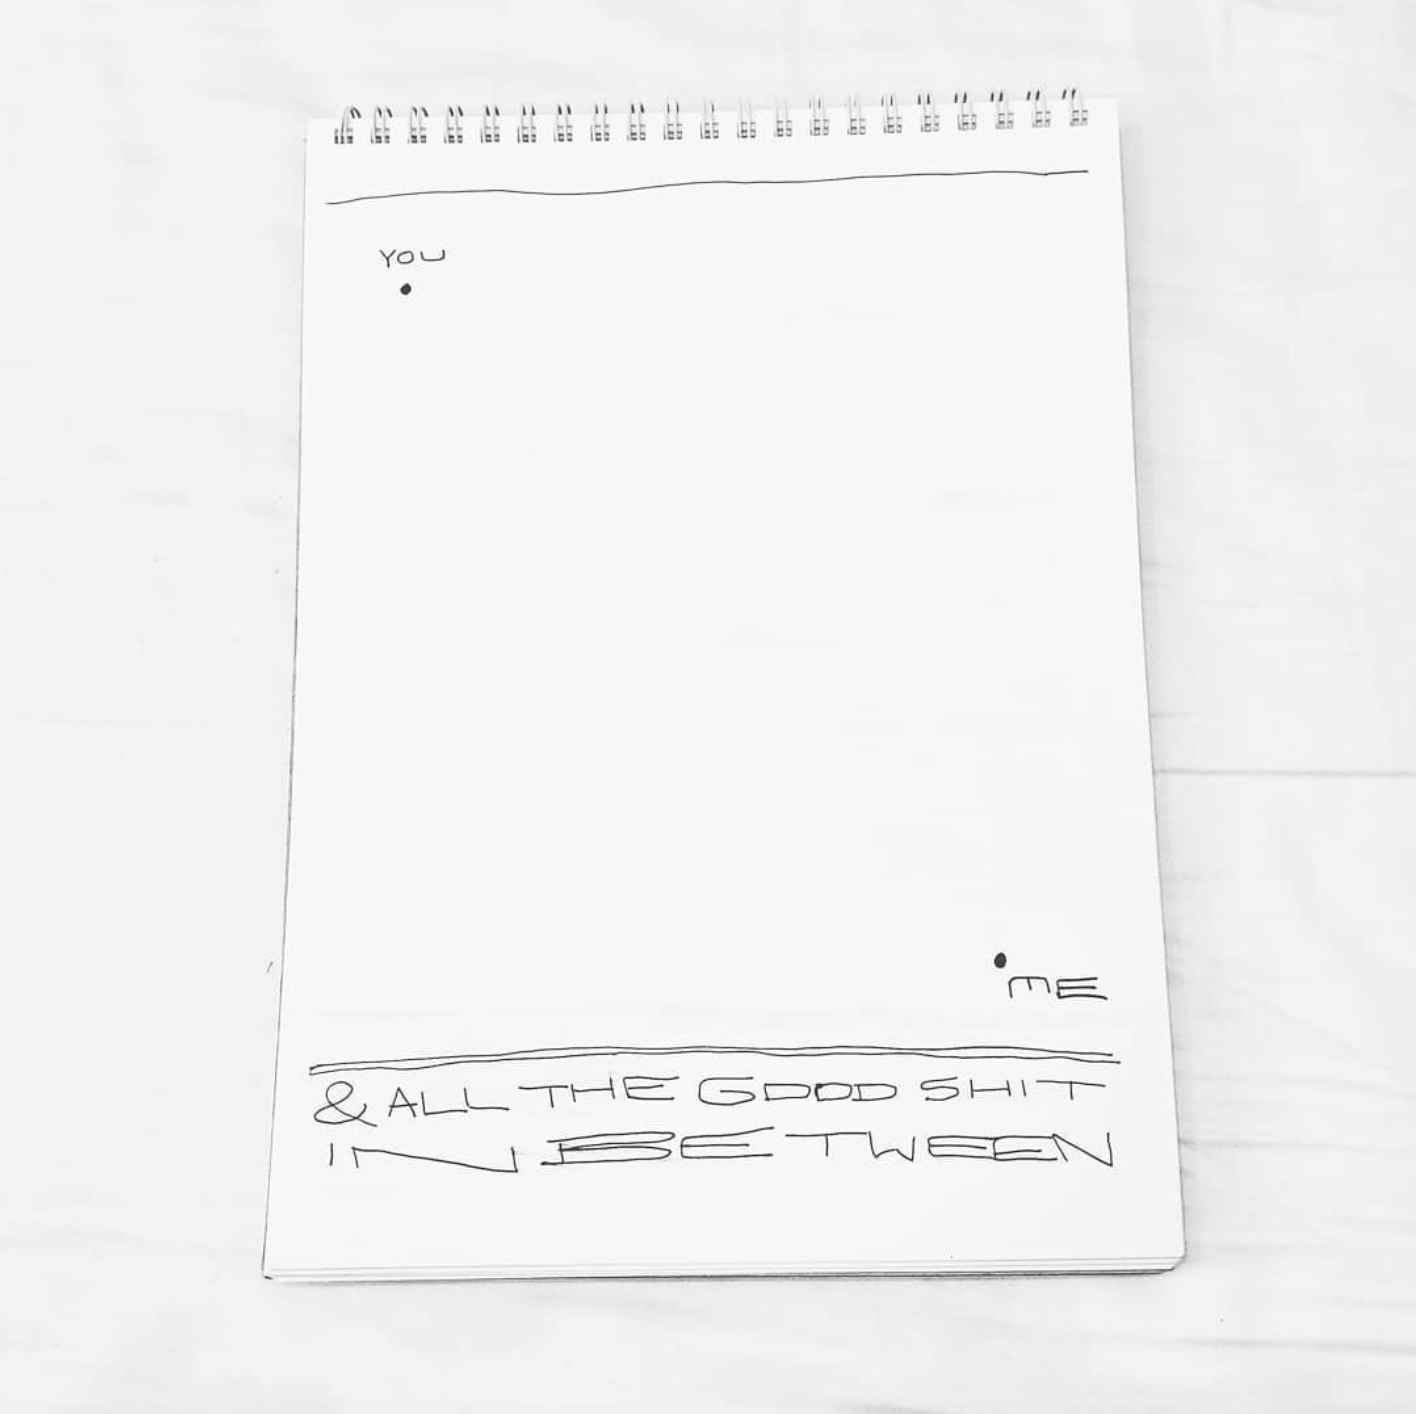 YOU
ME
& ALL THE GOOD SHIT
IN BETWEEN